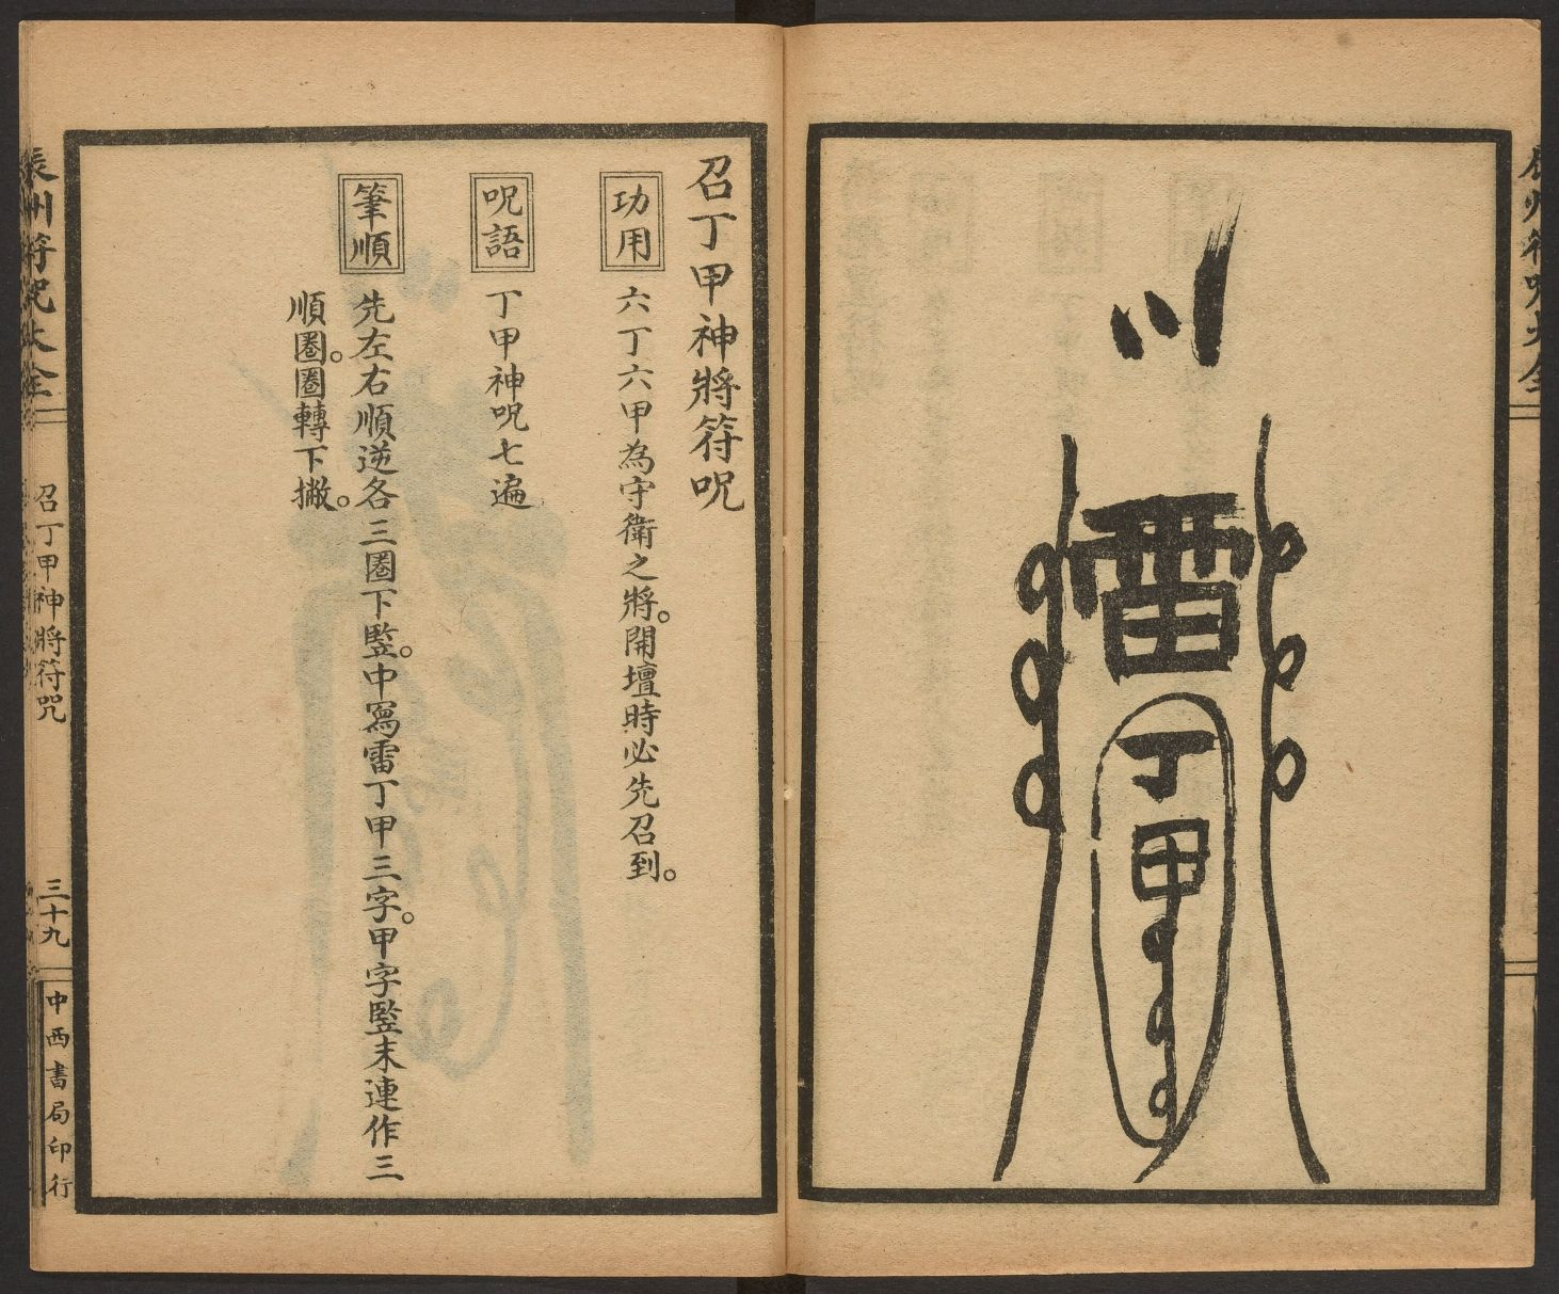 雷
丁
甲
召丁甲神將符呪
功用
六丁六甲為守衛之將。開壇時必先召到。
呪語
丁甲神呪七遍
筆順
先左右順逆各三圈下竪。中寫雷丁甲三字。甲字竪末連作三
順圈。圈轉下撇。
辰州符咒大全
召丁甲神將符咒
三十九
中西書局印行
辰州符咒大全